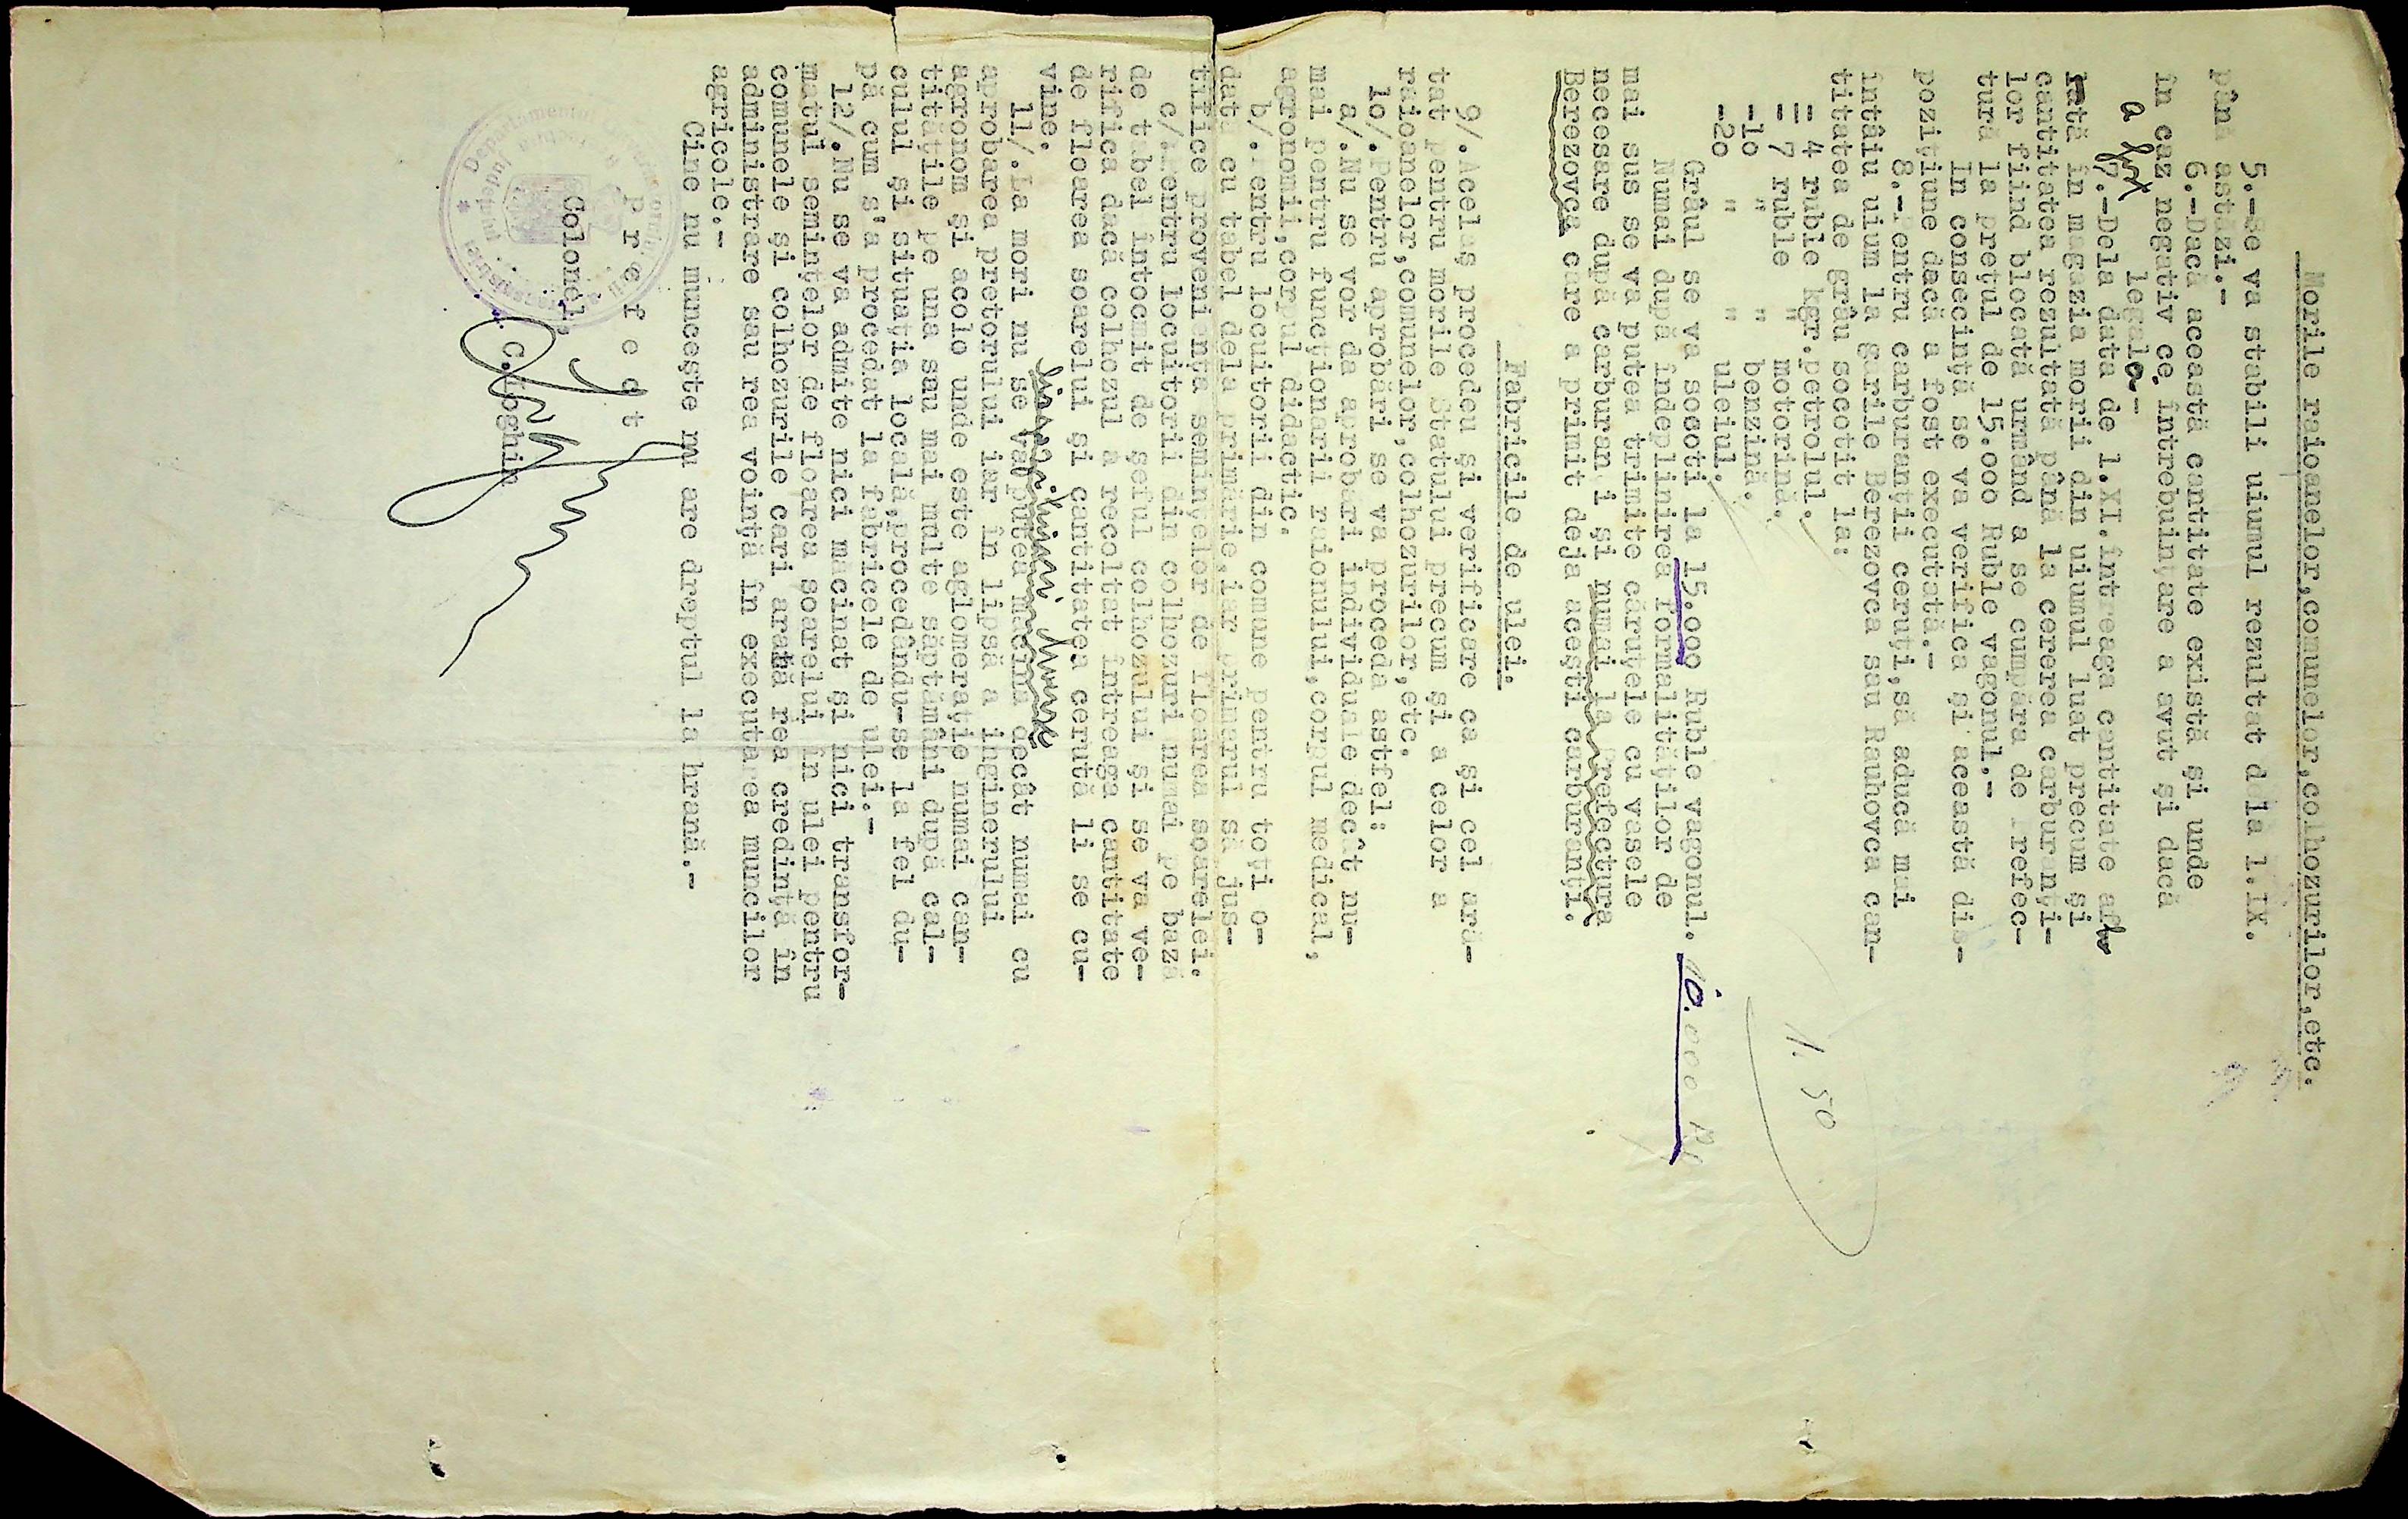 Morile raioanelor,comunelor,colhozurilor,etc.
5.-Se va stabili uiumul rezultat dela 1.IX.
până astăzi.-
6.-Dacă această cantitate există şi unde
în caz negativ ce întrebuinţare a avut şi dacă
a fost legală.-
7.-Dela data de 1.XI.întreaga cantitate af-
lată în magazia morii din uiumul luat precum şi
cantitatea rezultată până la cererea carburanţi-
lor fiind blocată urmând a se cumpăra de Prefec-
tură la preţul de 15.000 Ruble vagonul.-
In consecinţă se va verifica şi această dis-
poziţiune dacă a fost executată.-
8.-Pentru carburanţii ceruţi,să aducă mai
întâiu uium la garile Berezovca sau Rauhovca can-
titatea de grâu socotit la:
= 4 ruble kgr.petrolul.
= 7 ruble " motorină.
-10 " " benzină.
-20 " " uleiul.
1.50
Grâul se va socoti la 15.000 Ruble vagonul. 10.000
Numai după îndeplinirea formalităţilor de
mai sus se va putea trimite căruţele cu vasele
necesare după carburanţi şi numai la Prefectura
Berezovca care a primit deja aceşti carburanţi.
Fabricile de ulei.
9/.Acelaş procedeu şi verificare ca şi cel ară-
tat pentru morile Statului precum şi a celor a
raioanelor,comunelor,colhozurilor,etc.
10/.Pentru aprobări se va proceda astfel:
a/.Nu se vor da aprobari individuale decât nu-
mai pentru funcţionarii raionului,corpul medical,
agronomii,corpul didactic.
b/.Pentru locuitorii din comune pentru toţi o-
dată cu tabel dela primărie,iar primarul să jus-
tifice provenienţa seminţelor de floarea soarelei.
c/.Pentru locuitorii din colhozuri numai pe bază
de tabel întocmit de şeful colhozului şi se va ve-
rifica dacă colhozul a recoltat întreaga cantitate
de floarea soarelui şi cantitatea cerută li se cu-
vine.
11/.La mori nu se va putea măcina decât numai cu
aprobarea pretorului iar în lipsă a inginerului
agronom şi acolo unde este aglomeraţie numai can-
tităţile pe una sau mai multe săptămâni după cal-
culul şi situaţia locală,procedându-se la fel du-
pă cum s'a procedat la fabricele de ulei.-
12/.Nu se va admite nici măcinat şi nici transfor-
matul seminţelor de floarea soarelui în ulei pentru
comunele şi colhozurile cari arată rea credinţă în
administrare sau rea voinţă în executarea muncilor
agricole.-
Cine nu munceşte nu are dreptul la hrană.-
P r e f e c t
Colonel,
C.Loghin